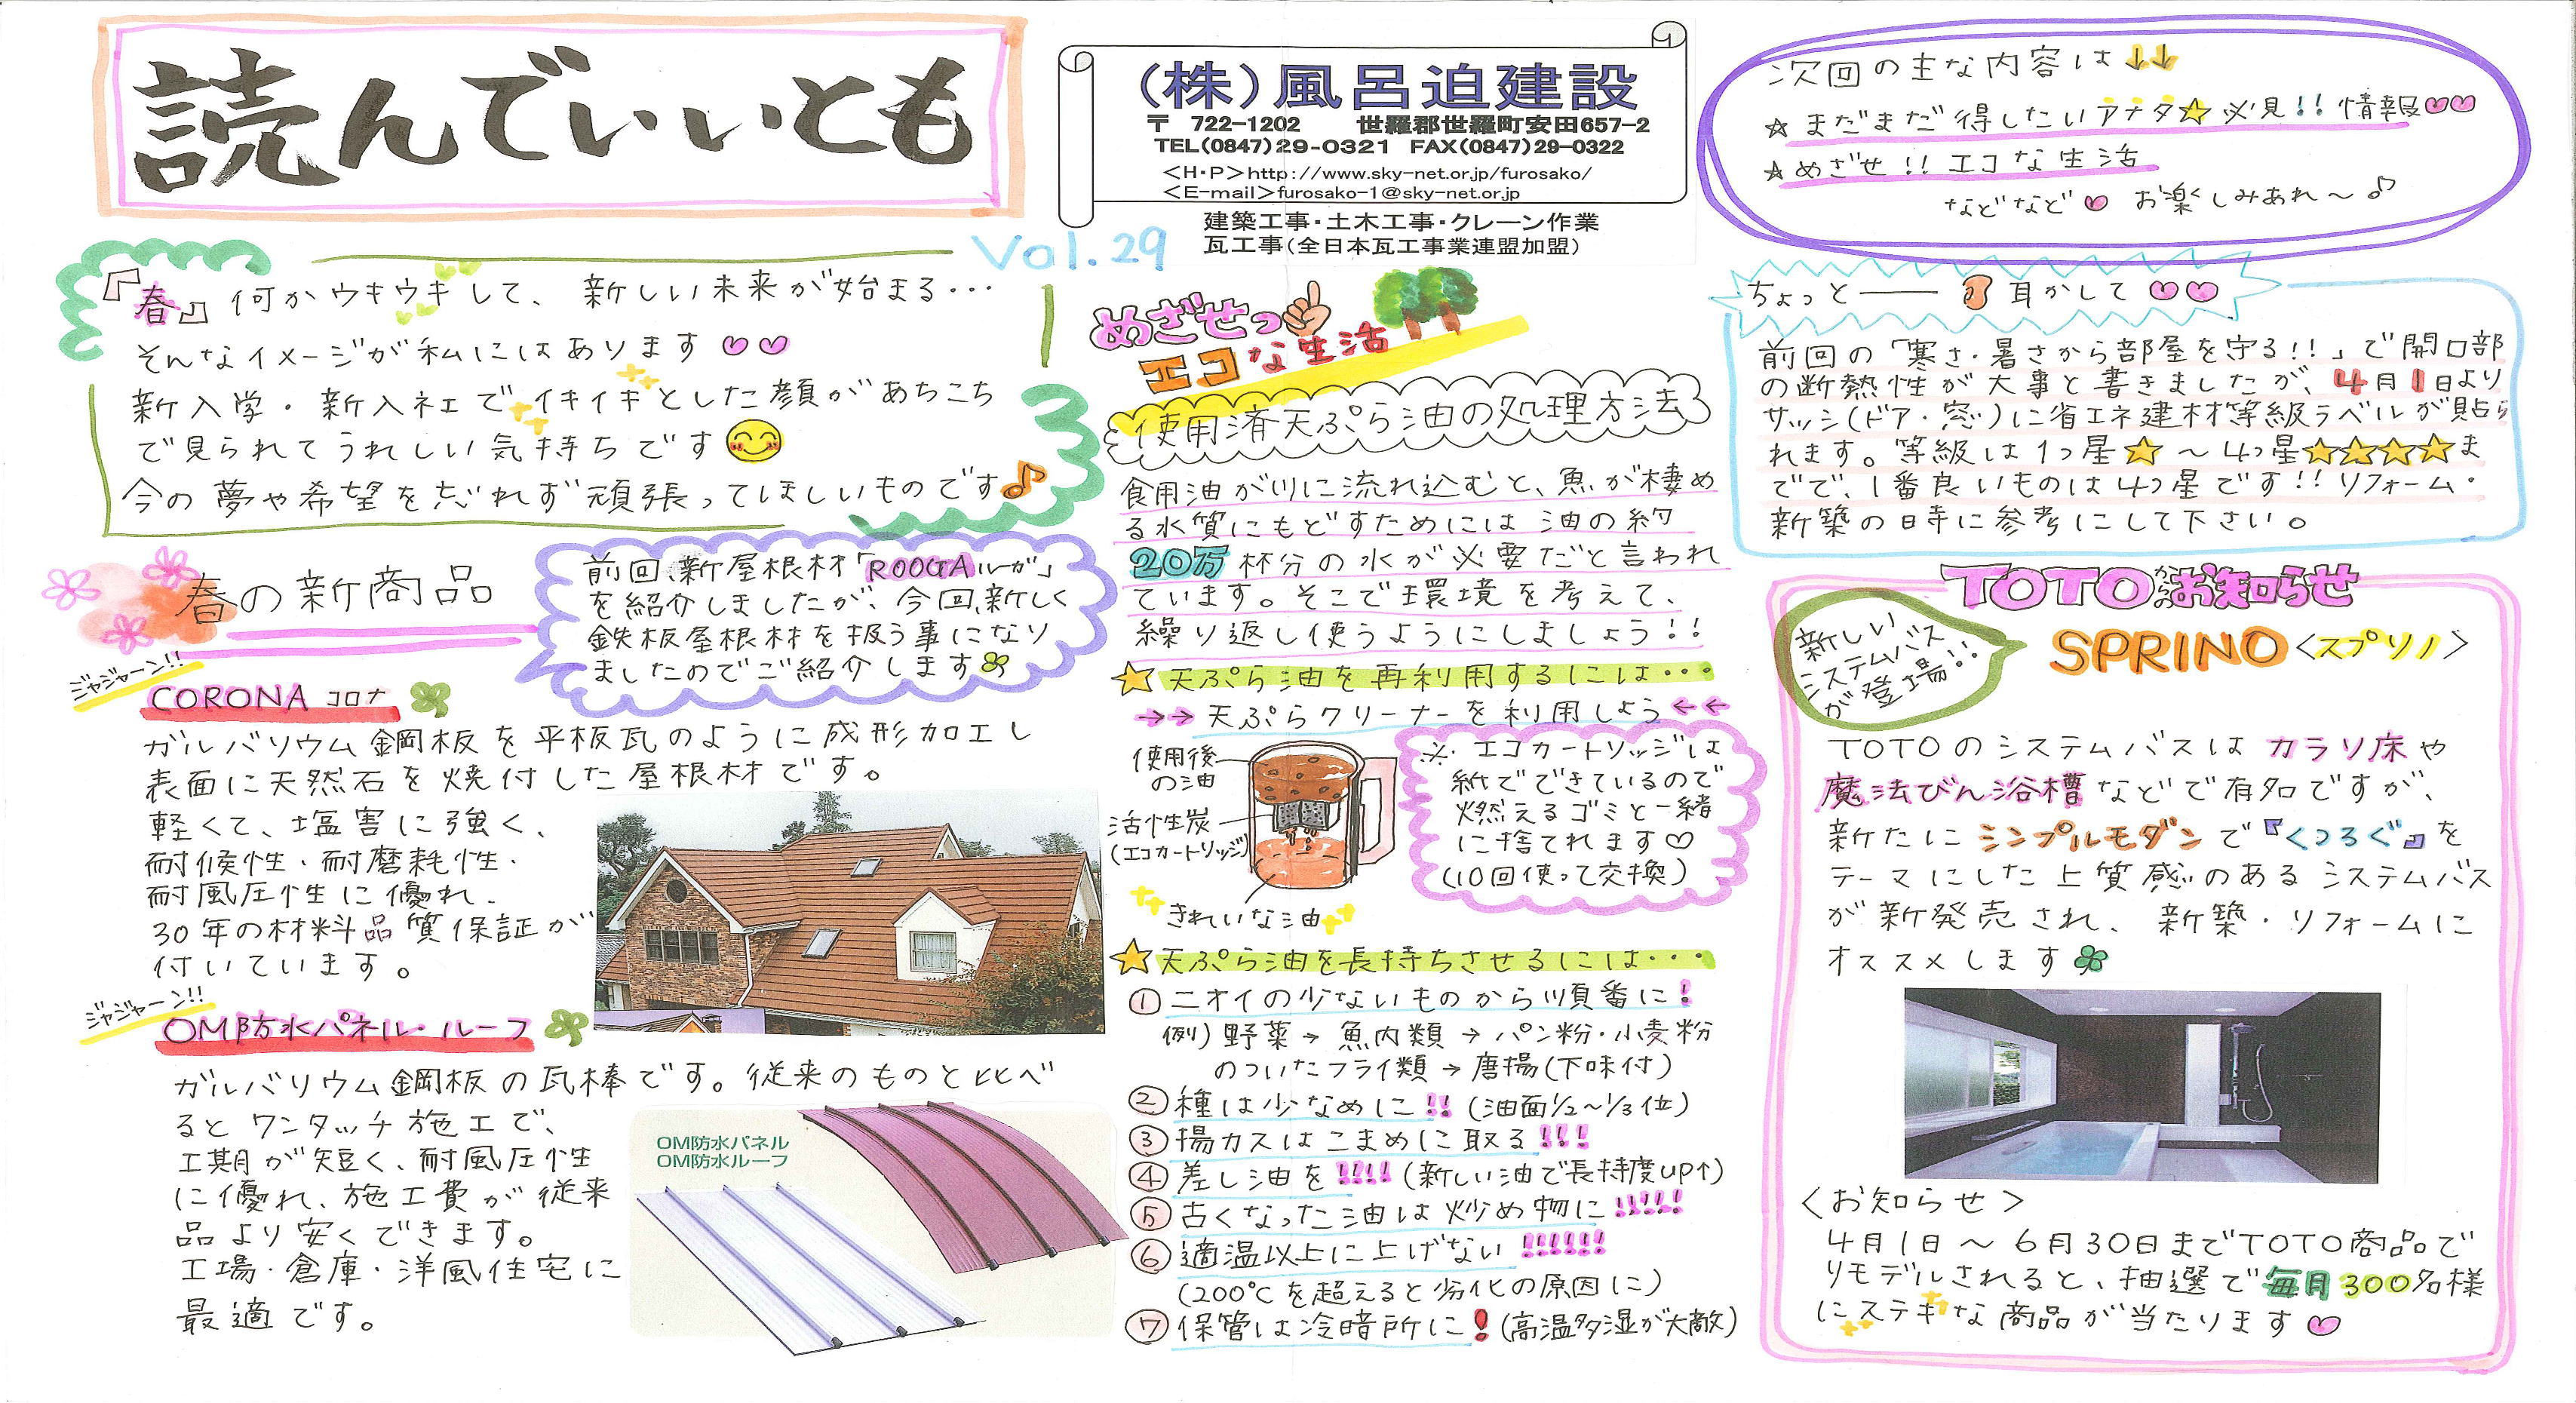 読んでいいとも
Vol.29
(株)風呂迫建設
〒 722-1202 世羅郡世羅町安田657-2
TEL(0847)29-0321 FAX(0847)29-0322
<H・P>http://www.sky-net.or.jp/furosako/
<E-mail>furosako-1@sky-net.or.jp
建築工事・土木工事・クレーン作業
瓦工事(全日本瓦工事業連盟加盟)
次回の主な内容は↓↓
☆まだまだ得したいアナタ☆必見!!情報♡♡
☆めざせ!!エコな生活
などなど♡ お楽しみあれ〜♪
『春』何かウキウキして、新しい未来が始まる・・・
そんなイメージが私にはあります♡♡
新入学・新入社でイキイキとした顔があちこち
で見られてうれしい気持ちです
今の夢や希望を忘れず頑張ってほしいものです♪
春の新商品
前回、新屋根材「ROOGAルーガ」
を紹介しましたが、今回、新しく
鉄板屋根材を扱う事になり
ましたのでご紹介します
ジャジャーン!!
CORONA コロナ
ガルバリウム鋼板を平板瓦のように成形加工し
表面に天然石を焼付した屋根材です。
軽くて、塩害に強く、
耐候性・耐磨耗性・
耐風圧性に優れ、
30年の材料品質保証が
付いています。
ジャジャーン!!
OM防水パネル・ルーフ
ガルバリウム鋼板の瓦棒です。従来のものと比べ
るとワンタッチ施工で、
工期が短く、耐風圧性
に優れ、施工費が従来
品より安くできます。
工場・倉庫・洋風住宅に
最適です。
OM防水パネル
OM防水ルーフ
めざせっ
エコな生活
使用済天ぷら油の処理方法
食用油が川に流れ込むと、魚が棲め
る水質にもどすためには油の約
20万杯分の水が必要だと言われ
ています。そこで環境を考えて、
繰り返し使うようにしましょう!!
☆天ぷら油を再利用するには・・・
→→天ぷらクリーナーを利用しよう←←
使用後
の油
活性炭
(エコカートリッジ)
きれいな油
※エコカートリッジは
紙でできているので
燃えるゴミと一緒
に捨てれます♡
(10回使って交換)
☆天ぷら油を長持ちさせるには・・・
①ニオイの少ないものから順番に!
例)野菜→魚肉類→パン粉・小麦粉
のついたフライ類→唐揚(下味付)
②種は少なめに!!(油面1/2〜1/3位)
③揚カスはこまめに取る!!!
④差し油を!!!!(新しい油で長持度UP↑)
⑤古くなった油は炒め物に!!!!!
⑥適温以上に上げない!!!!!!
(200℃を超えると劣化の原因に)
⑦保管は冷暗所に!(高温多湿が大敵)
ちょっと―― 耳かして♡♡
前回の「寒さ・暑さから部屋を守る!!」で開口部
の断熱性が大事と書きましたが、4月1日より
サッシ(ドア・窓)に省エネ建材等級ラベルが貼ら
れます。等級は1つ星☆〜4つ星☆☆☆☆ま
でで、1番良いものは4つ星です!!リフォーム・
新築の時に参考にして下さい。
TOTOからのお知らせ
新しい
システムバス
が登場!!
SPRINO<スプリノ>
TOTOのシステムバスはカラリ床や
魔法びん浴槽などで有名ですが、
新たにシンプルモダンで『くつろぐ』を
テーマにした上質感のあるシステムバス
が新発売され、新築・リフォームに
オススメします
<お知らせ>
4月1日〜6月30日までTOTO商品で
リモデルされると、抽選で毎月300名様
にステキな商品が当たります♡